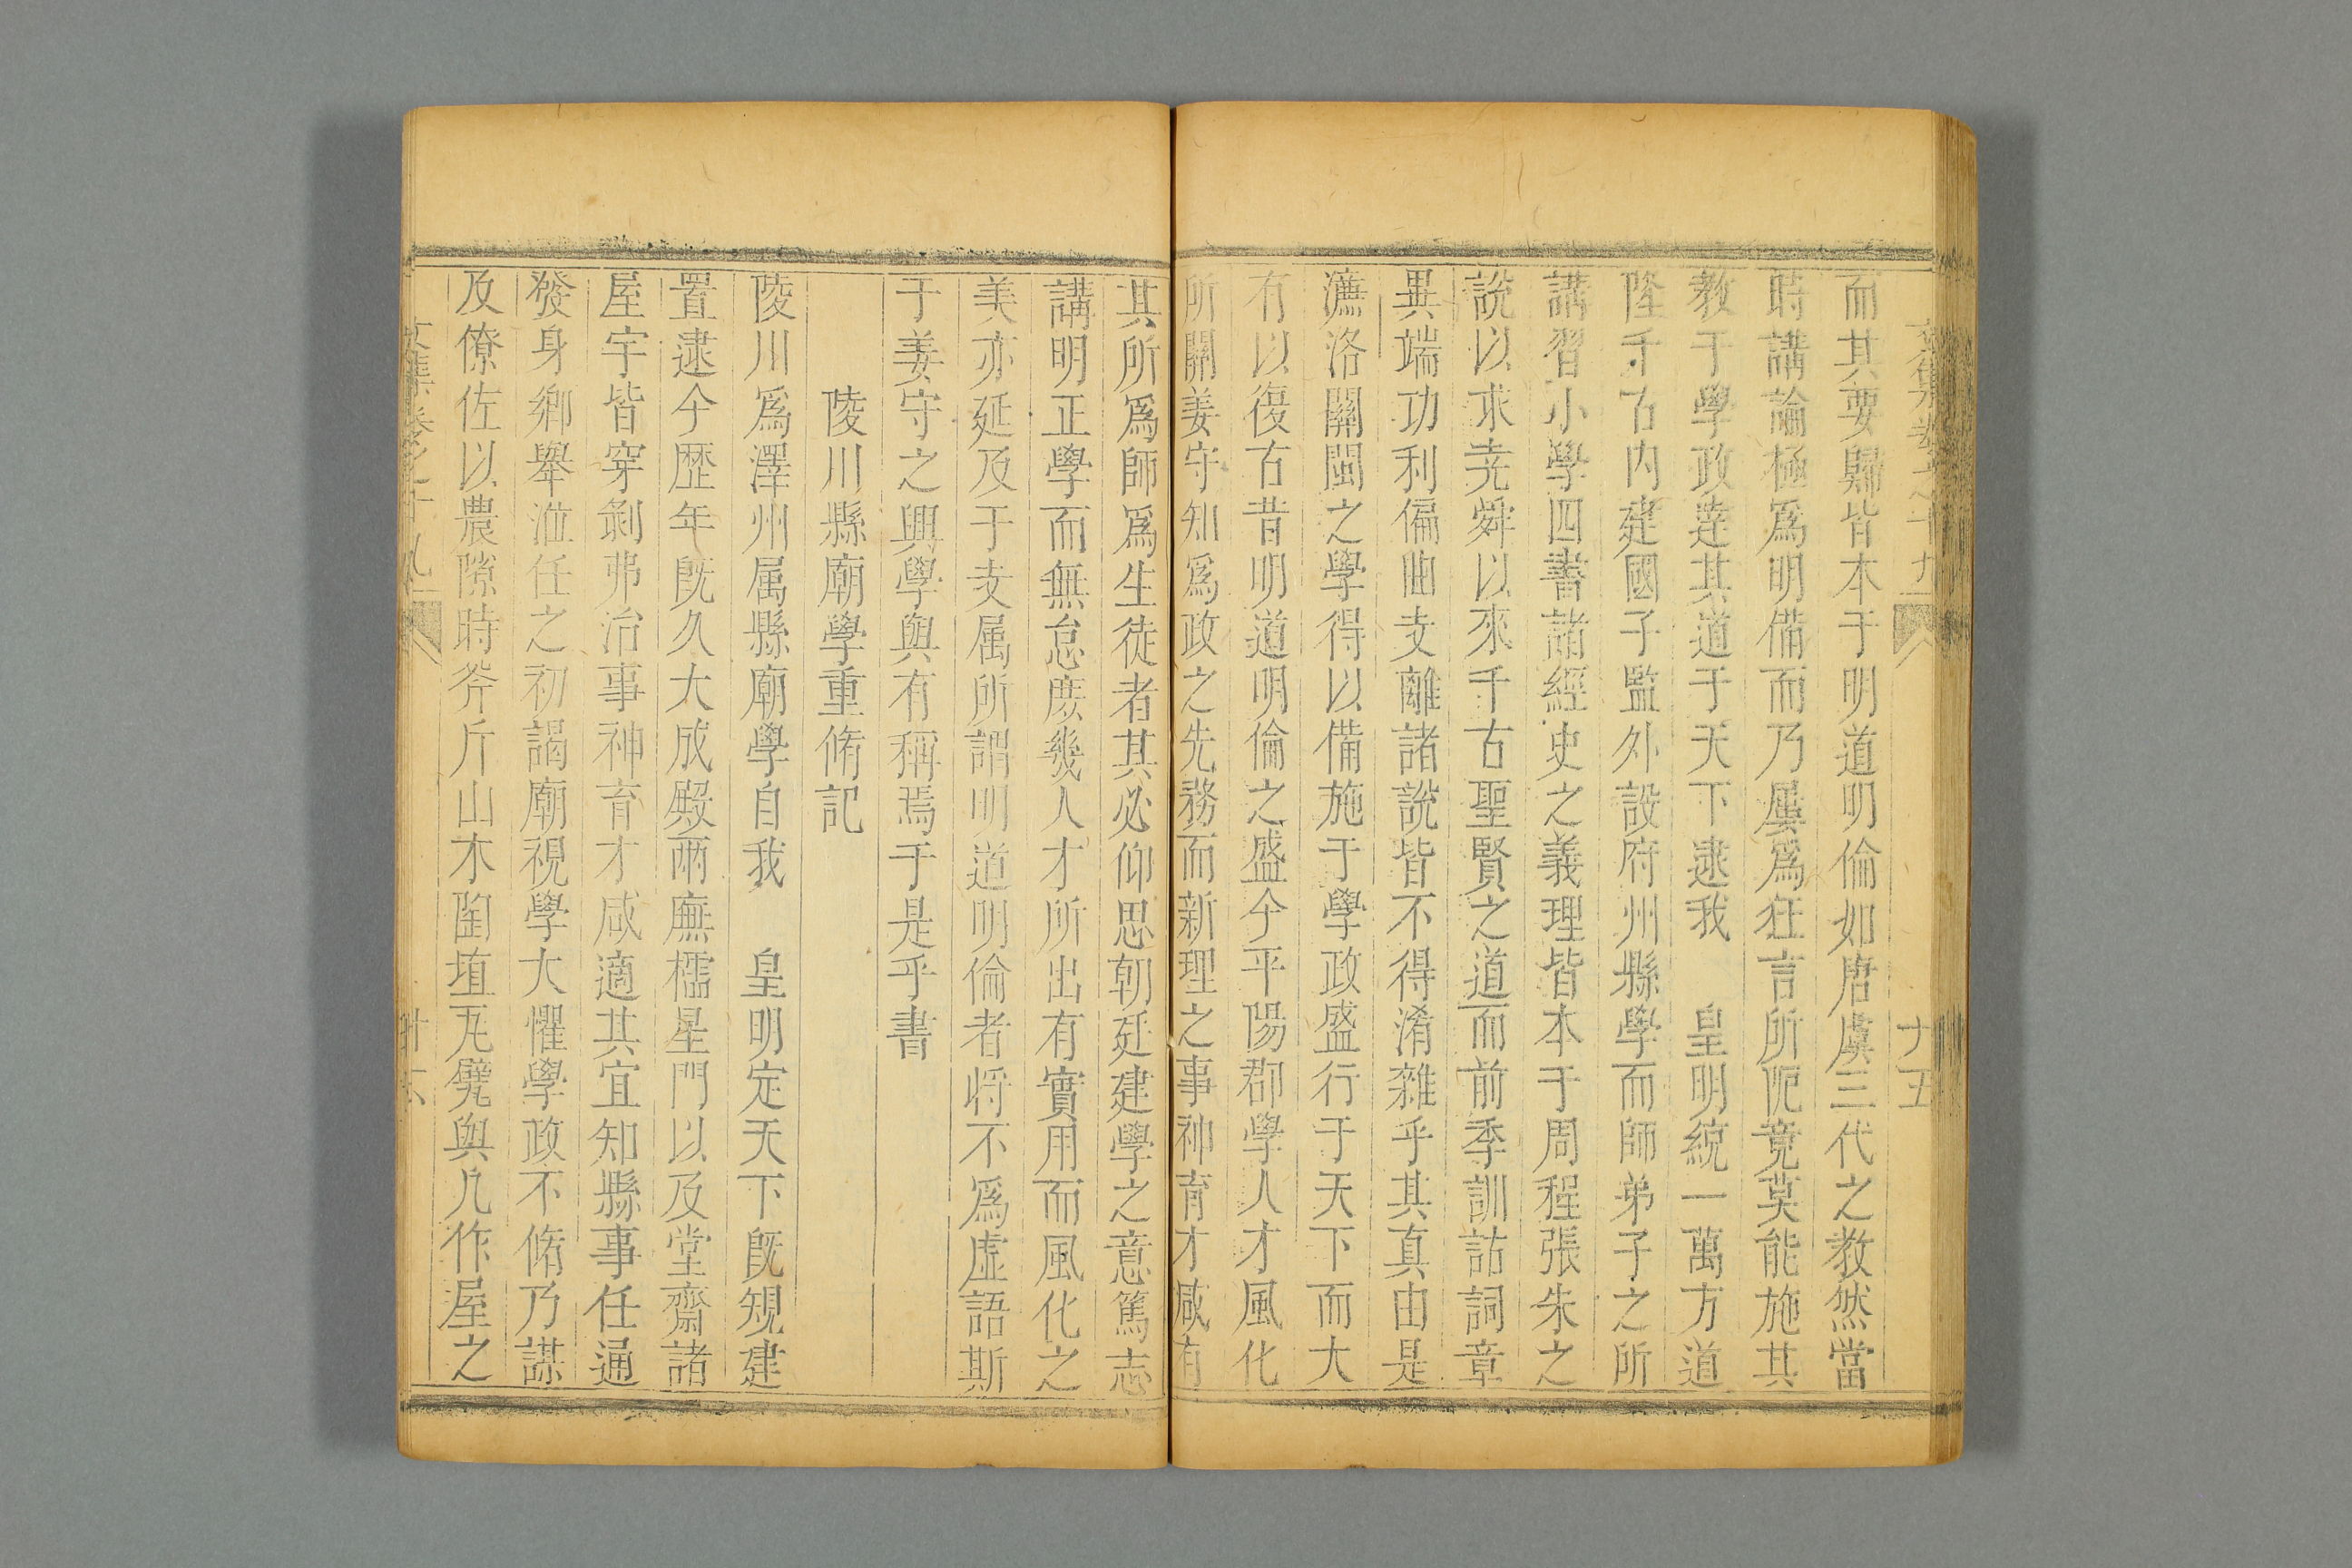 文集卷之十九
十五
而其要歸皆本于明道明倫如唐虞三代之教然當
時講論極爲明備而乃屢爲狂言所阨竟莫能施其
教于學政達其道于天下逮我　皇明統一萬方道
隆千古內建國子監外設府州縣學而師弟子之所
講習小學四書諸經史之義理皆本于周程張朱之
說以求堯舜以來千古聖賢之道而前季訓詁詞章
異端功利偏曲支離諸說皆不得淆雜乎其真由是
濂洛關閩之學得以備施于學政盛行于天下而大
有以復古昔明道明倫之盛今平陽郡學人才風化
所關姜守知爲政之先務而新理之事神育才咸有
其所爲師爲生徒者其必仰思朝廷建學之意篤志
講明正學而無怠庶幾人才所出有實用而風化之
美亦延及于支属所謂明道明倫者将不爲虛語斯
于姜守之興學與有稱焉于是乎書
陵川縣廟學重脩記
陵川爲澤州属縣廟學自我　皇明定天下旣規建
置逮今歴年旣久大成殿兩廡櫺星門以及堂齋諸
屋宇皆穿剝弗治事神育才咸適其宜知縣事任通
發身鄉舉涖任之初謁廟視學大懼學政不脩乃謀
及僚佐以農隙時斧斤山木陶埴瓦甓與凡作屋之
文集卷之十九